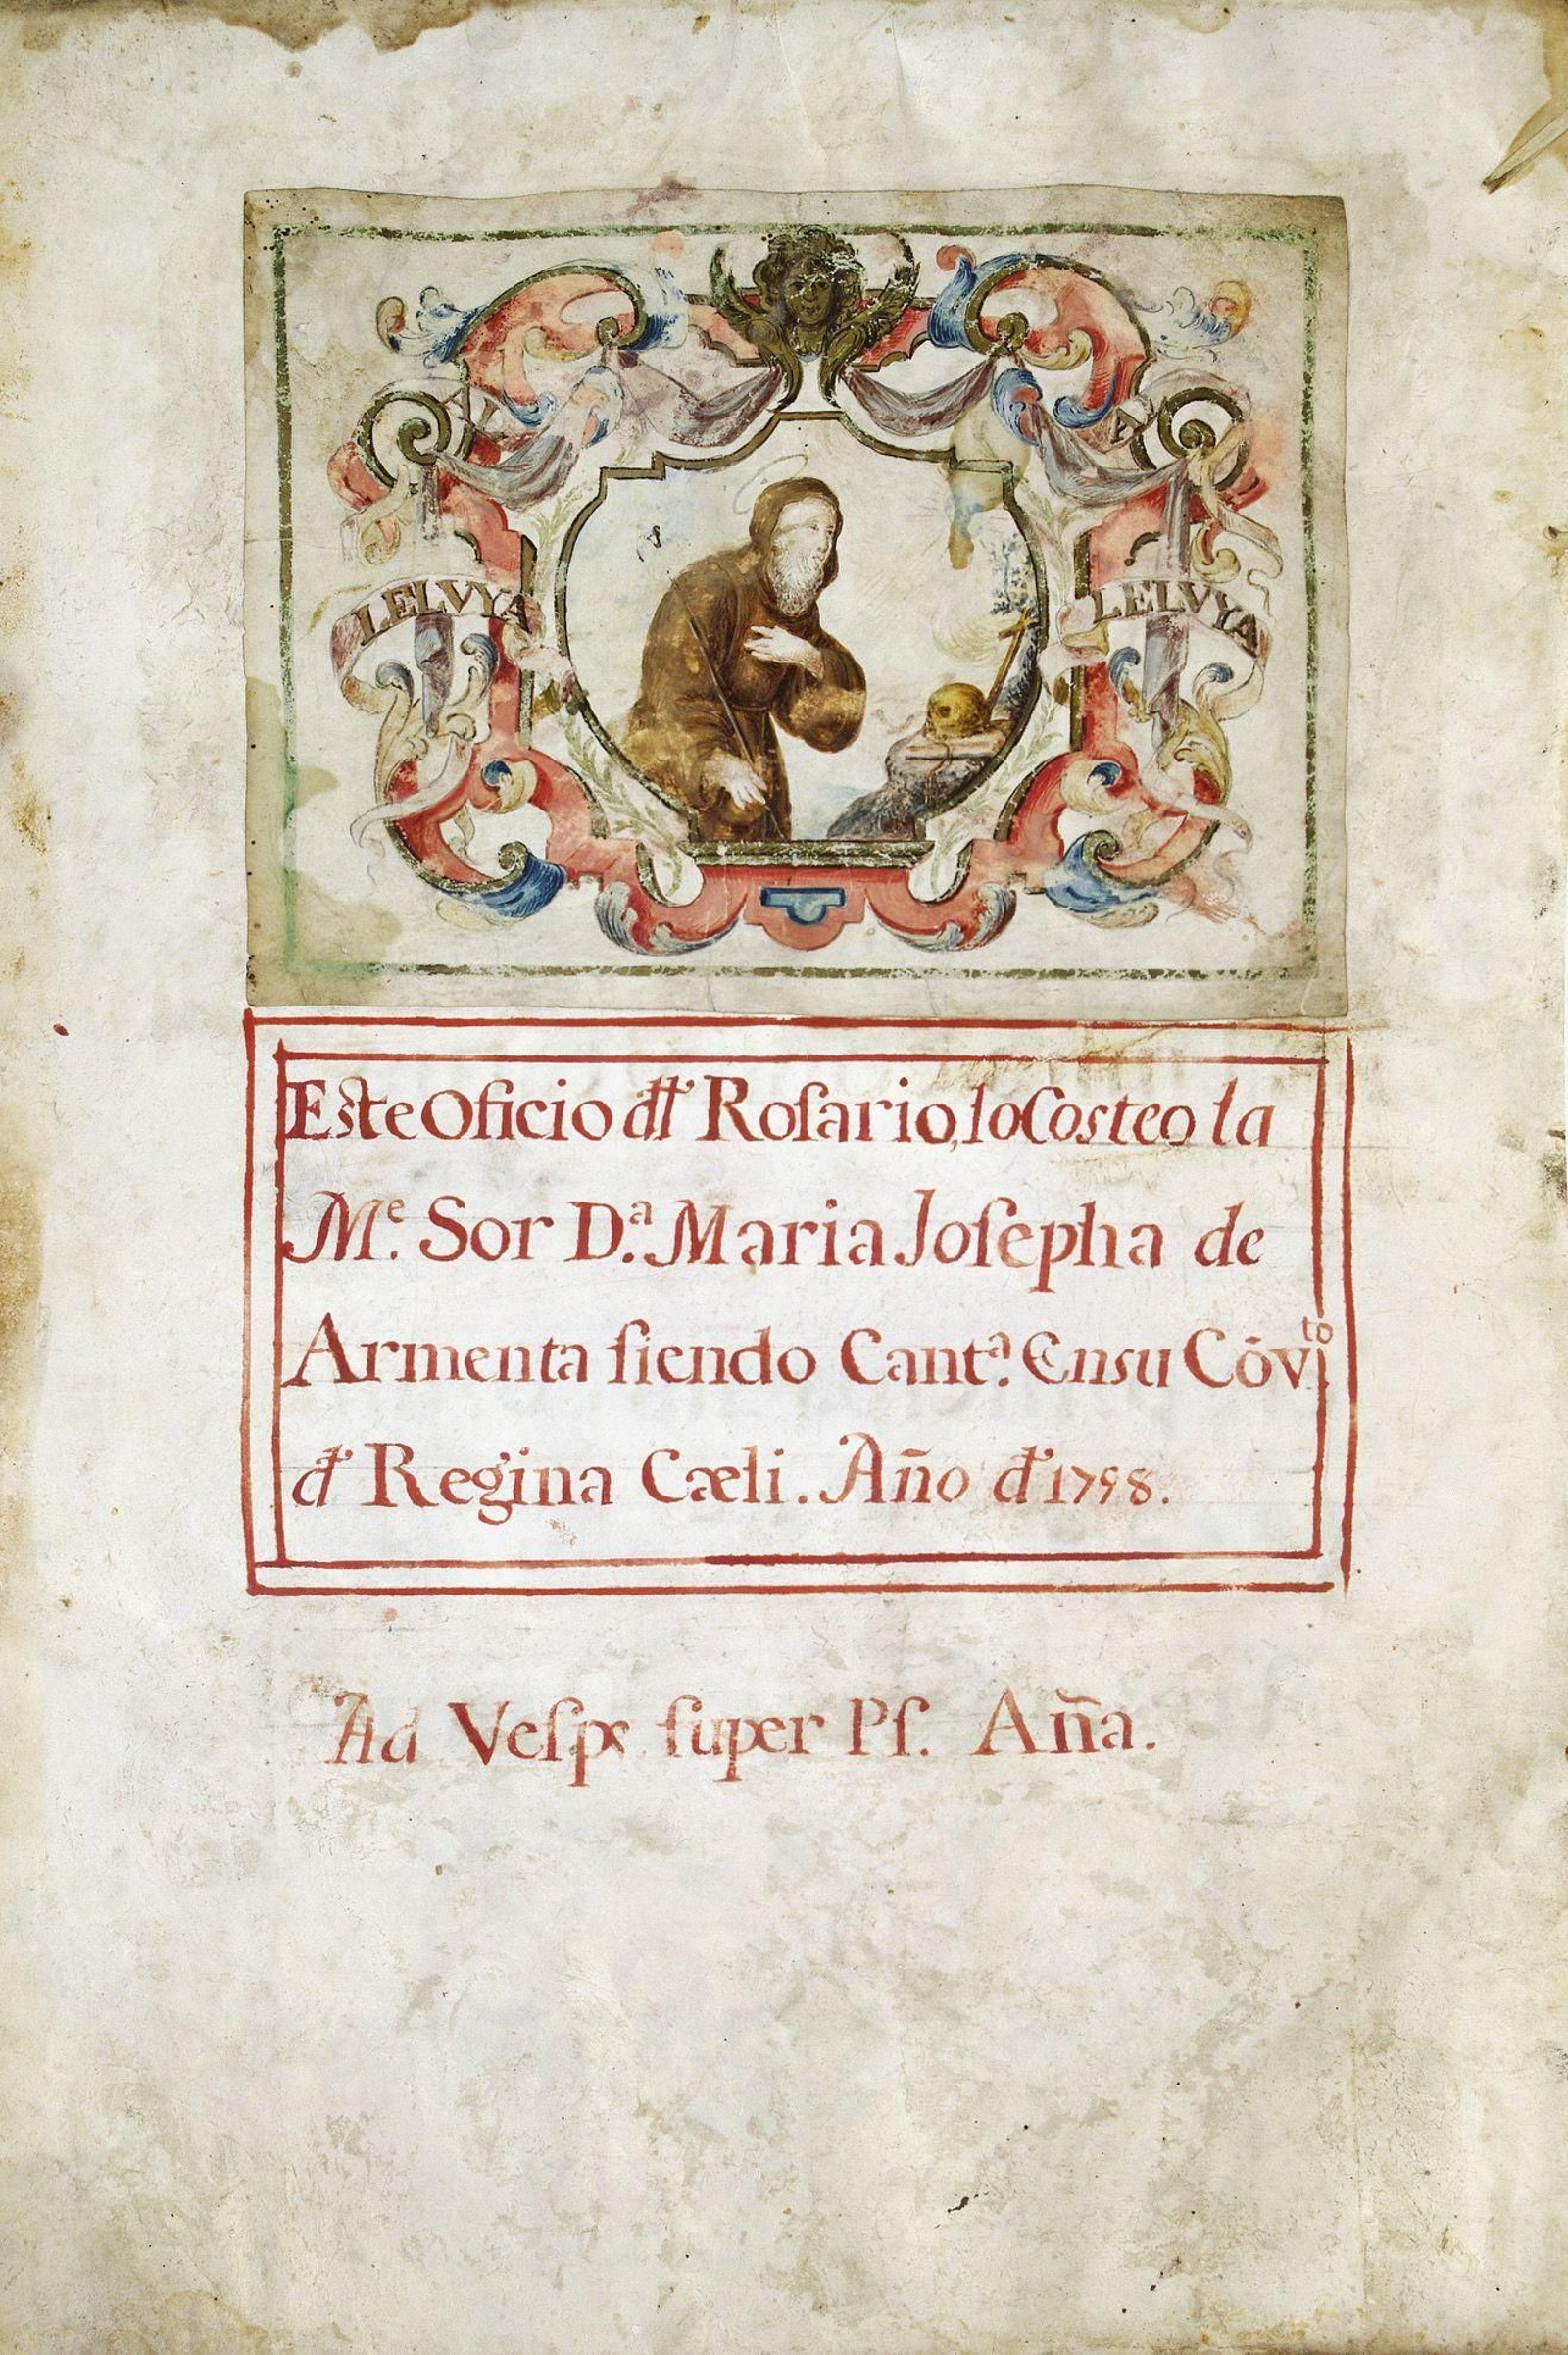 AL
A
LELVYA
LELVYA
Este Oficio dƚƚ Roſario, lo Costeo la
Mᵉ. Sor D.ª Maria Joſepha de
Armenta ſiendo Cantª. En su Cōvᵗᵒ.
đ Regina Cæli. Año đ 1798.
Ad Veſps ſuper Pſ. Aña.